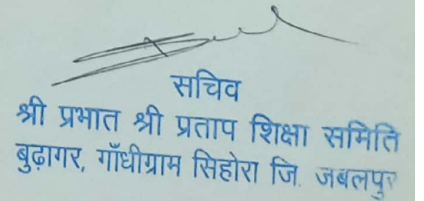 सचिव
श्री प्रभात श्री प्रताप शिक्षा समिति
बुढ़ागर, गाँधीग्राम सिहोरा जि. जबलपुर